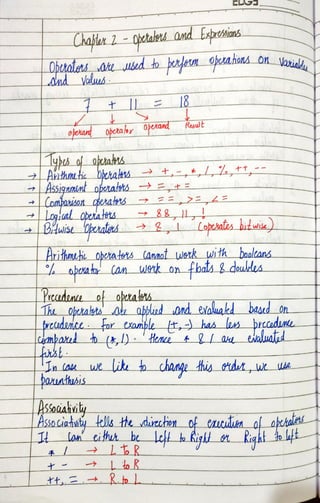 EDGE
Chapter 2 - Operators and Expressions
Operators are used to perform operations on variables
and values.
7 + 11 = 18
operand operator operand Result
Types of operators
→ Arithmetic Operators → +, -, *, /, %, ++, --
→ Assignment operators → =, +=
→ Comparison operators → ==, >=, <=
→ Logical operators → &&, ||, !
→ Bitwise operators → &, | (operates bitwise)
Arithmetic operators cannot work with booleans
% operator can work on floats & doubles
Precedence of operators
The operators are applied and evaluated based on
precedence. For example (+, -) has less precedence
compared to (*, /). Hence * & / are evaluated
first.
In case we like to change this order, we use
parenthesis
Associativity
Associativity tells the direction of execution of operators
It can either be Left to Right or Right to left
* / → L to R
+ - → L to R
++, = → R to L